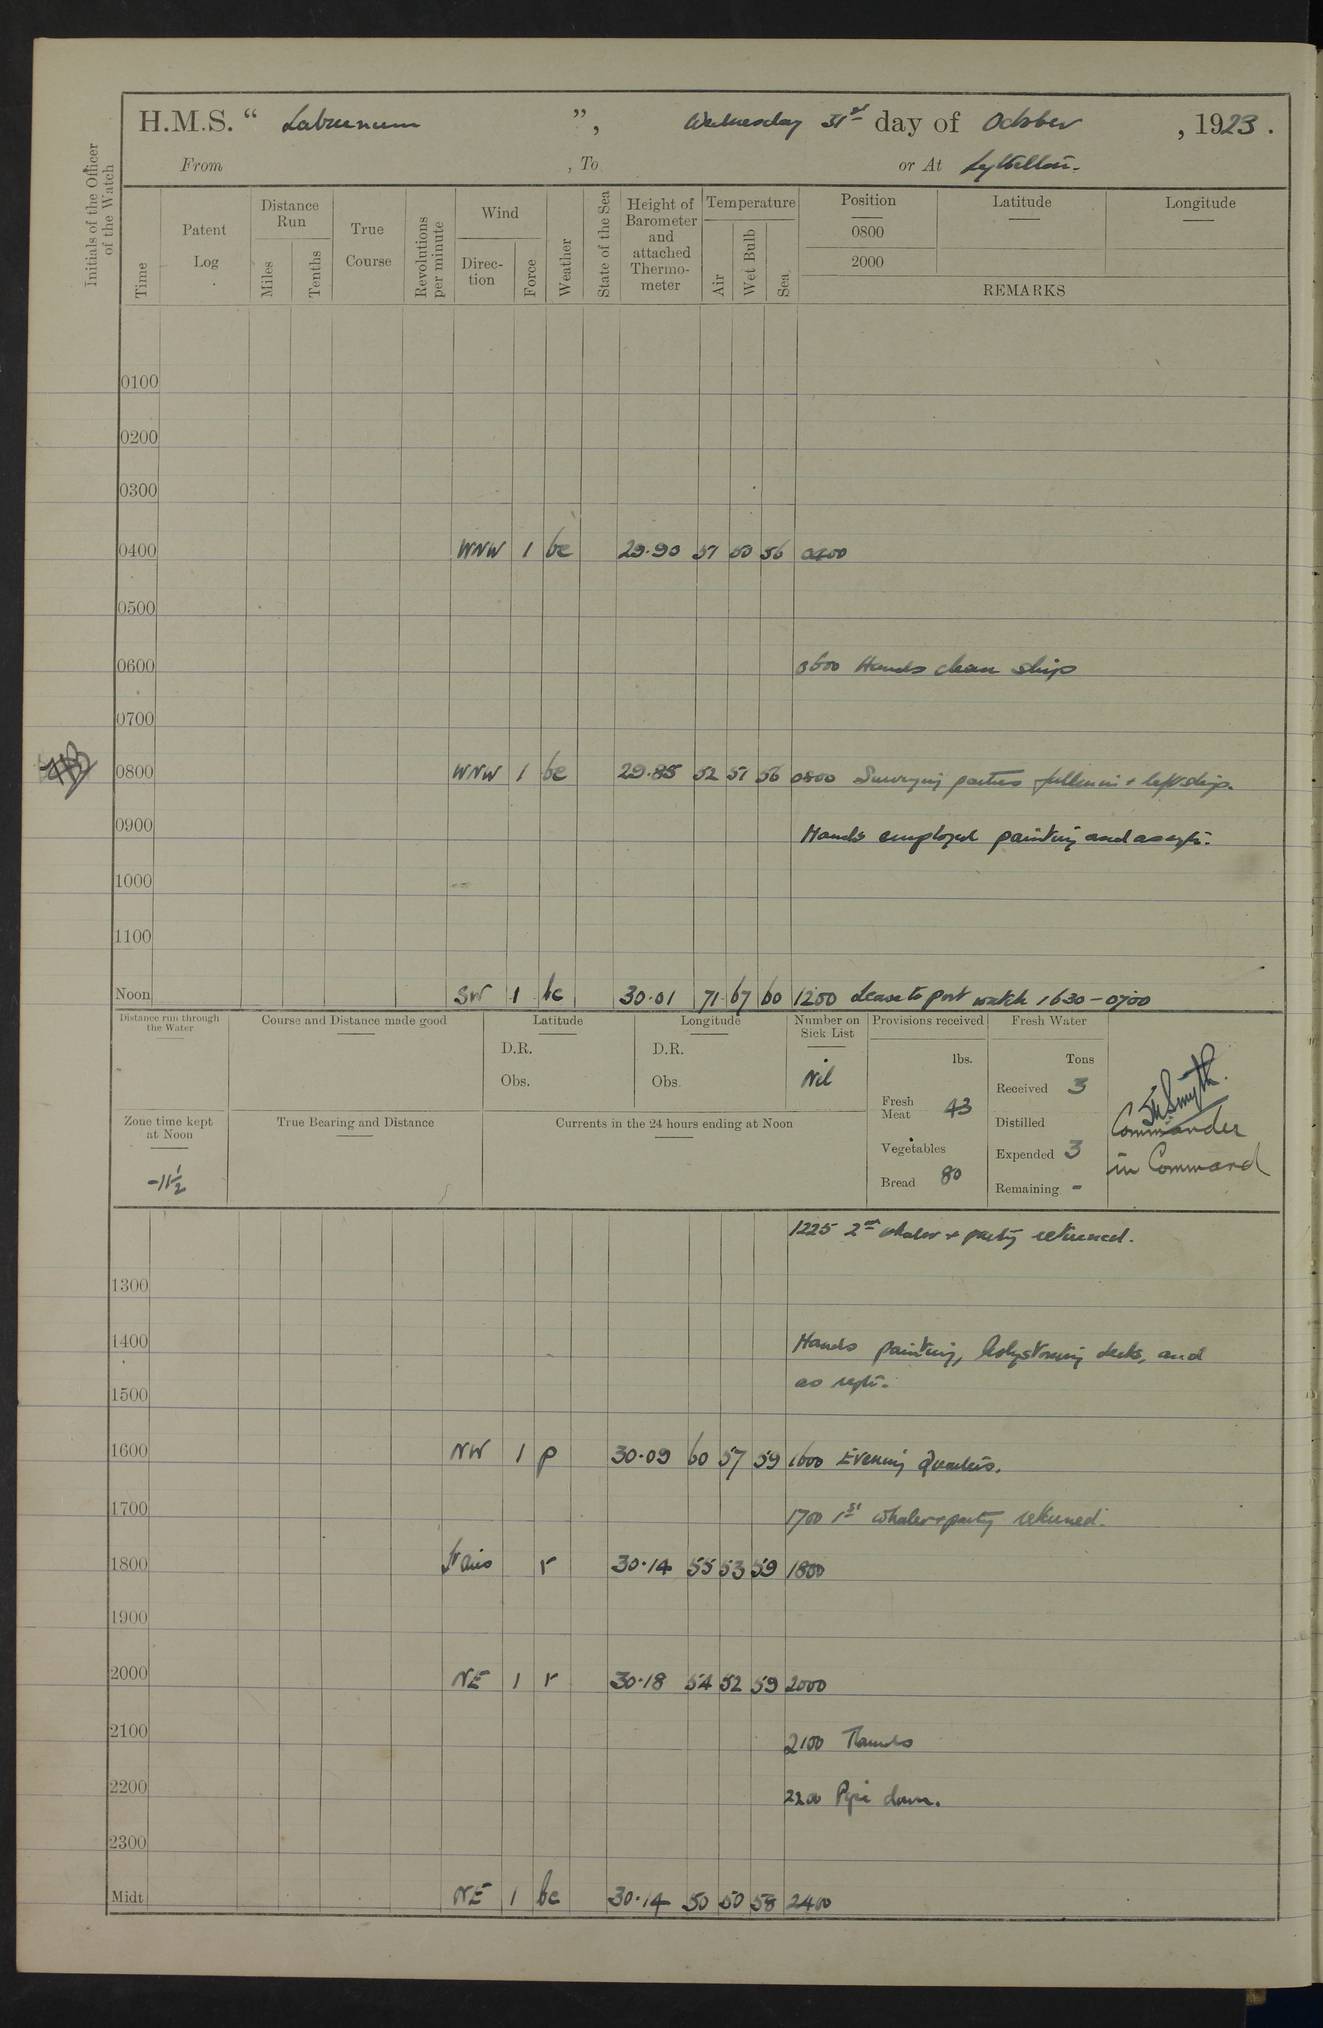 H.M.S. “ Laburnum ”, Wednesday 31st day of October , 1923.
From , To or At Lyttelton.
Initials of the Officer of the Watch
Time
Patent Log
Distance Run
Miles
Tenths
True Course
Revolutions per minute
Wind
Direc-tion
Force
Weather
State of the Sea
Height of Barometer and attached Thermo-meter
Temperature
Air
Wet Bulb
Sea
Position
0800
2000
Latitude
Longitude
REMARKS
0100
0200
0300
0400 WNW 1 bc 29.90 51 50 56 0400
0500
0600 0600 Hands clean ship
0700
0800 WNW 1 bc 29.85 52 51 56 0800 Surveying parties fell in + left ship.
0900 Hands employed painting and as reqte.
1000
1100
Noon SW 1 bc 30.01 71 67 60 1200 Leave to port watch 1630 - 0700
Distance run through the Water
Course and Distance made good
Latitude
D.R.
Obs.
Longitude
D.R.
Obs.
Number on Sick List
Nil
Provisions received
lbs.
Fresh Meat 43
Vegetables
Bread 80
Fresh Water
Tons
Received 3
Distilled
Expended 3
Remaining -
Smyth.
Commander
in Command
Zone time kept at Noon
-11½
True Bearing and Distance
Currents in the 24 hours ending at Noon
1225 2nd whaler + party returned.
1300
1400 Hands painting, holystoning decks, and
as reqte.
1500
1600 NW 1 p 30.09 60 57 59 1600 Evening Quarters.
1700 1700 1st whaler + party returned.
1800 r 30.14 55 53 59 1800
1900
2000 NE 1 r 30.18 54 52 59 2000
2100 2100 Rounds
2200 2200 Pipe down.
2300
Midt NE 1 bc 30.14 50 50 58 2400